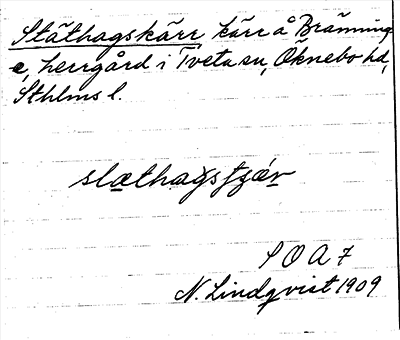 Släthagskärr, kärr å Bränning-
e, herrgård i Tveta sn, Öknebo hd,
Sthlms l.
slæthagsҫæ̨r
S O A 7
N. Lindqvist 1909